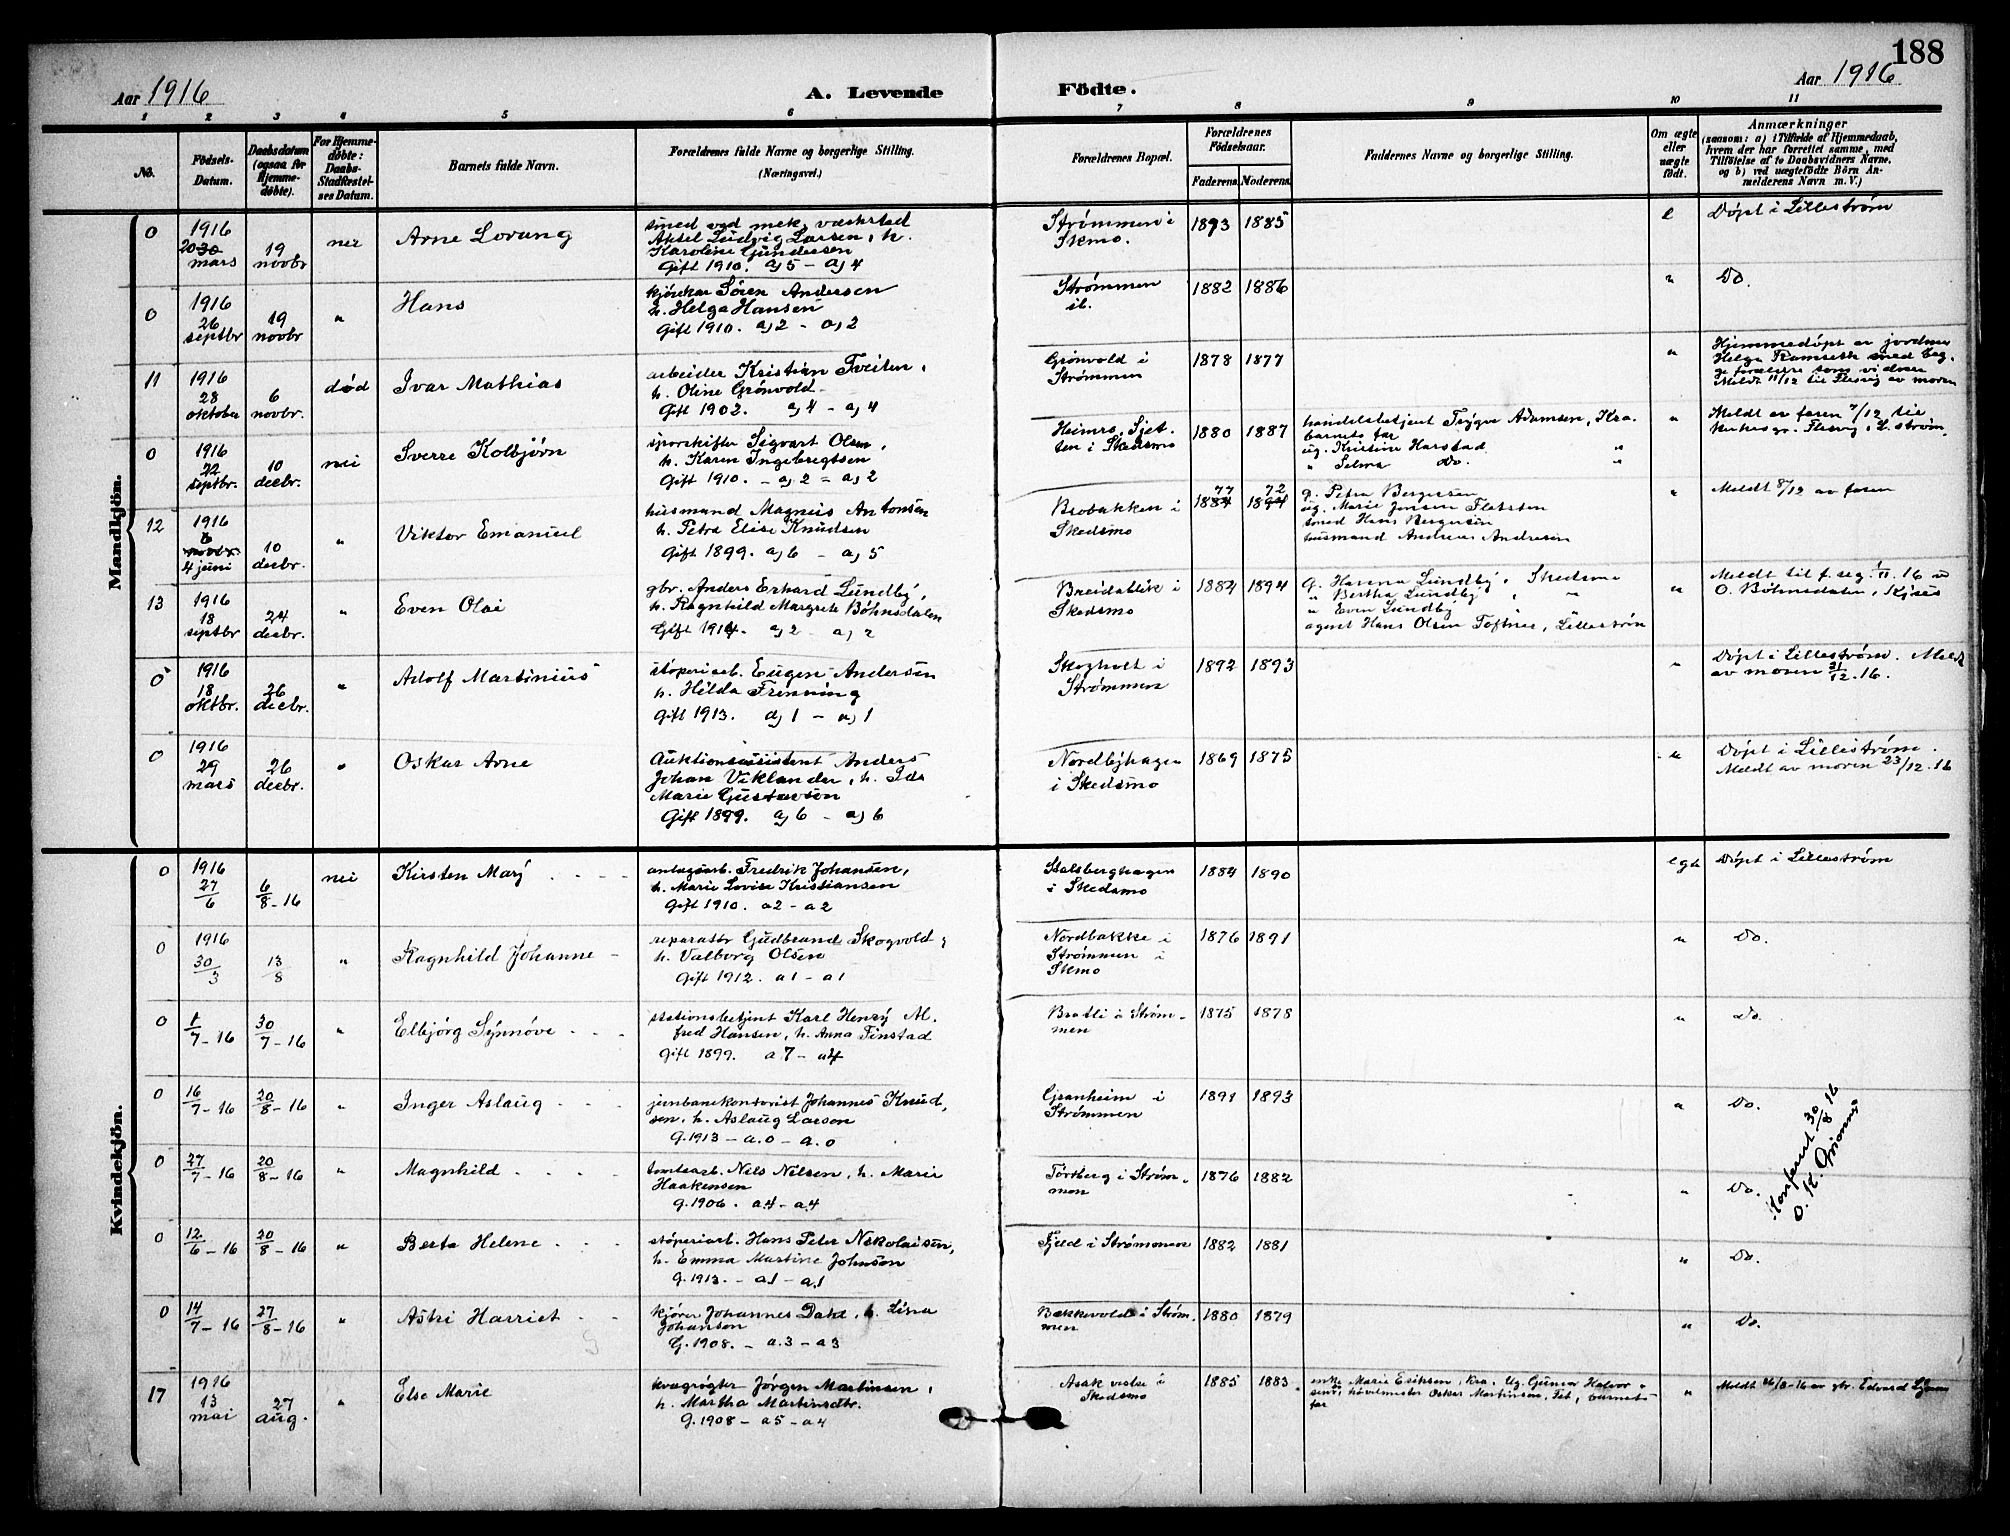 188
Aar 1916
A. Levende
Födte.
Aar 1916
1 2 3 4 5 6 7 8 9 10 11
No.
Födsels-Datum.
Daabsdatum (ogsaa for Hjemmedöbte).
For Hjemmedöbte: Daabs-Stadfæstelses Datum.
Barnets fulde Navn.
Forældrenes fulde Navne og borgerlige Stilling.
(Næringsvei.)
Forældrenes Bopæl.
Forældrenes Födselsaar.
Faderens. Moderens.
Faddernes Navne og borgerlige Stilling.
Om ægte eller uægte født.
Anmærkninger
(saasom: a) i Tilfælde af Hjemmedaab, hvem der har forrettet samme, med Tilföielse af to Daabsvidners Navne, og b) ved uægtefödte Börn Anmelderens Navn m. V.)
Mandkjön.
0 1916 20 30 mars 19 novbr nei Arne Lovang
smed ved mek. værksted
Aksel Ludvig Larsen, h.
Karoline Gundersen
Gift 1910. a) 5 - a) 4
Strømmen i
Skmo.
1893 1885 e Døpt i Lillestrøm
0 1916 26 septbr 19 novbr " Hans
kjørekar Sören Andersen
h. Helga Hansen
Gift 1910. a) 2 - a) 2
Strømmen
ib.
1882 1886 " Do.
11 1916 28 oktober 6 novbr. død Ivar Mathias
arbeider Kristian Tveiten,
h. Oline Grönvold
Gift 1902. a) 4 - a) 4
Grönvold i
Strømmen
1878 1877 "
Hjemmedöpt av jordmor
Helga Ramseth med beg.
ge forældre som vidner
Meldt 11/12 til Flesvig av moren
0 1916 22 septbr. 10 decbr. nei Sverre Kolbjørn
sporskifter Sigvart Olsen,
h. Karen Ingebregtsen
Gift 1910. - a) 2 - a) 2
Heimro, Sjet-
ten i Skedsmo
1880 1887
handelsbetjent Trygve Adamsen, Kra
barnets far
ug. Kristine Harstad "
" Selma do. "
" Meldt av faren 7/12 til
Flesvig, L.strøm.
12 1916 6 novbr. 4 juni 10 decbr. " Viktor Emanuel
husmand Magnus Antonsen
h. Petra Elise Knudsen
Gift 1899. a) 6 - a) 5
Brobakken i
Skedsmo
77 1884 72 1894
g. Petra Bergersen
ug. Marie Jensen
smed Hans Bergersen
husmand Andreas Andresen
" Meldt 8/12 av faren
13 1916 18 septbr 24 decbr. " Even Olai
gbr. Anders Erhard Lundby,
h. Ragnhild Margrete Böhnsdalen
Gift 1914. a) 2 - a) 2
Breidablik i
Skedsmo
1884 1894
g. Hanna Lundby, Skedsmo
" Bertha Lundby, "
" Even Lundby "
agent Hans Olsen Toftnes, Lillestrøm
" Meldt til f. seg. 1/11.16 av
O. Böhnsdalen,
0 1916 18 oktbr. 26 decbr. " Adolf Martinius
støperiarb. Eugen Andersen
h. Hilda Frenning
Gift 1913. a) 1 - a) 1
Skogholt i
Strømmen
1892 1893 "
Døpt i Lillestrøm. Meldt
av moren 21/12.16.
0 1916 29 mars 26 decbr. " Oskar Arne
Auktionsassistent Anders
Johan Viklander, h. Ida
Marie Gustavson
Gift 1899. a) 6 - a) 6
Nordbyhagen
i Skedsmo
1869 1875 "
Døpt i Lillestrøm.
Meldt av moren 23/12.16
Kvindekjön.
0 1916 27/6 6/8-16 nei Kirsten Mary
anlægsarb. Fredrik Johansen,
h. Marie Lovise Kristiansen
Gift 1910. a2 - a2
Stalsberghagen
i Skedsmo
1884 1890 egt Døpt i Lillestrøm
0 1916 30/3 13/8 " Ragnhild Johanne
reparatör Gudbrand Skogvold,
h. Valborg Olsen
Gift 1912. a1 - a1
Nordbakke i
Strømmen i
Skmo
1876 1891 " Do.
0 1/7-16 30/7-16 " Elbjörg Synnöve
stationsbetjent Karl Henry Al-
fred Hansen, h. Anna Finstad
Gift 1899. a7 - a4
Bratli i Strøm-
men
1875 1878 " Do.
0 16/7-16 20/8-16 " Inger Aslaug
jernbanekontorist Johannes Knud-
sen, h. Aslaug Larsen
g. 1913 - a.0 - a.0
Granheim i
Strømmen
1891 1893 " Do.
0 27/7-16 20/8-16 " Magnhild
tomtearb. Nils Nilsen, h. Marie
Haakensen
g. 1906. - a.4 - a.4
Torsberg i Strøm-
men
1876 1882 " Do.
Konferert 30/8 16
O. K. Grönnes
0 12/6-16 20/8-16 " Berta Helene
støperiarb. Hans Peter Nikolaisen,
h. Emma Martine Johnson
g. 1913. - a.1 - a.1
Fjeld i Strømmen
1882 1881 " Do.
0 14/7-16 27/8-16 " Astri Harriet
kjører Johannes Dahl, h. Lina
Johanson
G. 1908. - a.3 - a3
Bækkevold i Strøm-
men
1880 1879 " Do.
17 1916 13 mai 27 aug. " Else Marie
kvægrøgter Jørgen Martinsen,
h. Martha Martinsdtr.
g. 1908 - a5 - a4
Asak vestre i
Skedsmo
1885 1883
enke Marie Eriksen, Kra. Ug. Gunvor Halvor-
sen, hövlemester Oskar Martinsen, Fet, barnets
far
" Meldt 26/8-16 av gbr. Edvard